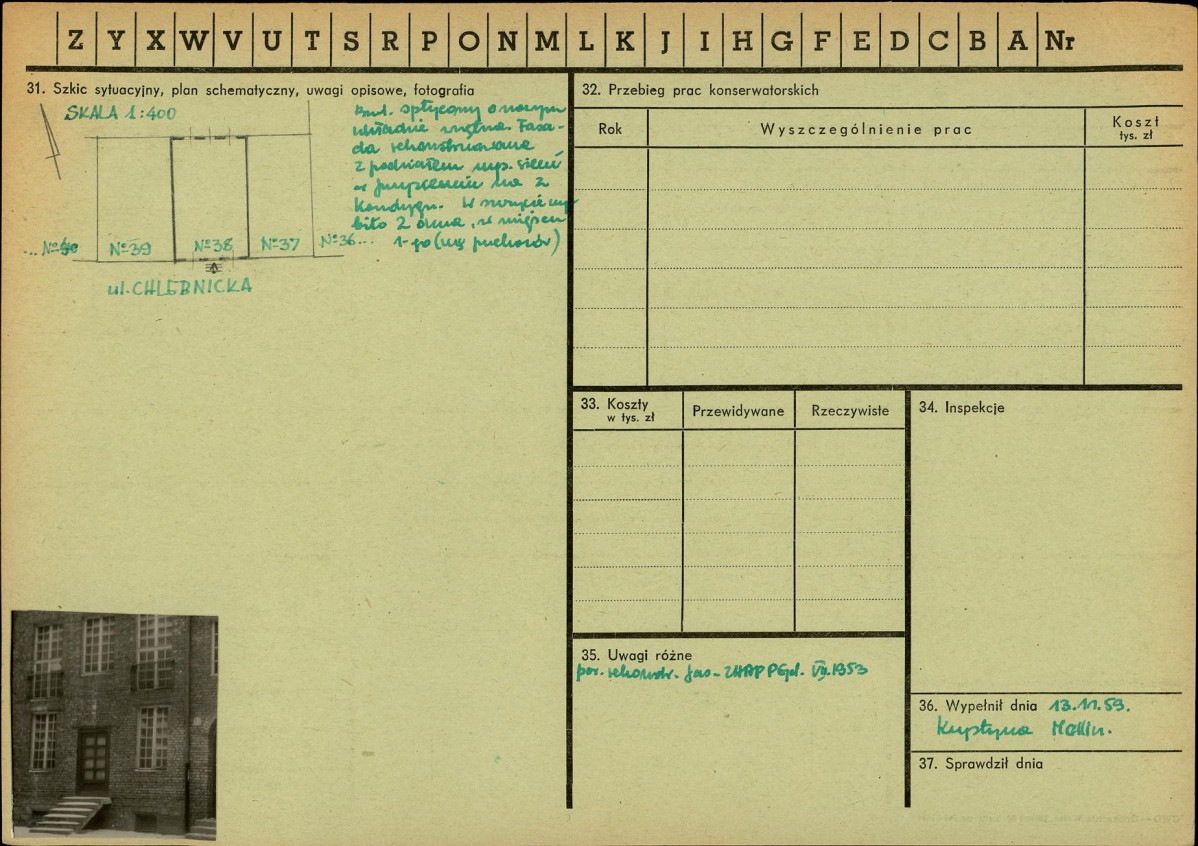 Z Y X W V U T S R P O N M L K J I H G F E D C B A Nr
31. Szkic sytuacyjny, plan schematyczny, uwagi opisowe, fotografia
SKALA 1:400
Bud. spłycony o nowym
układzie wnętrza. Fasa-
da rekonstruowana
z podziałem
na 2
kondygn. W
biło 2 okna, w miejscu
1-go
... Nº40 Nº39 Nº38 Nº37 Nº36...
ul. CHLEBNICKA
32. Przebieg prac konserwatorskich
Rok Wyszczególnienie prac Koszt
tys. zł
33. Koszty
w tys. zł
Przewidywane Rzeczywiste
34. Inspekcje
35. Uwagi różne
por. rekonstr. fas- ZHAP PGd. VII.1953
36. Wypełnił dnia 13.11.59.
Krystyna Mellin.
37. Sprawdził dnia